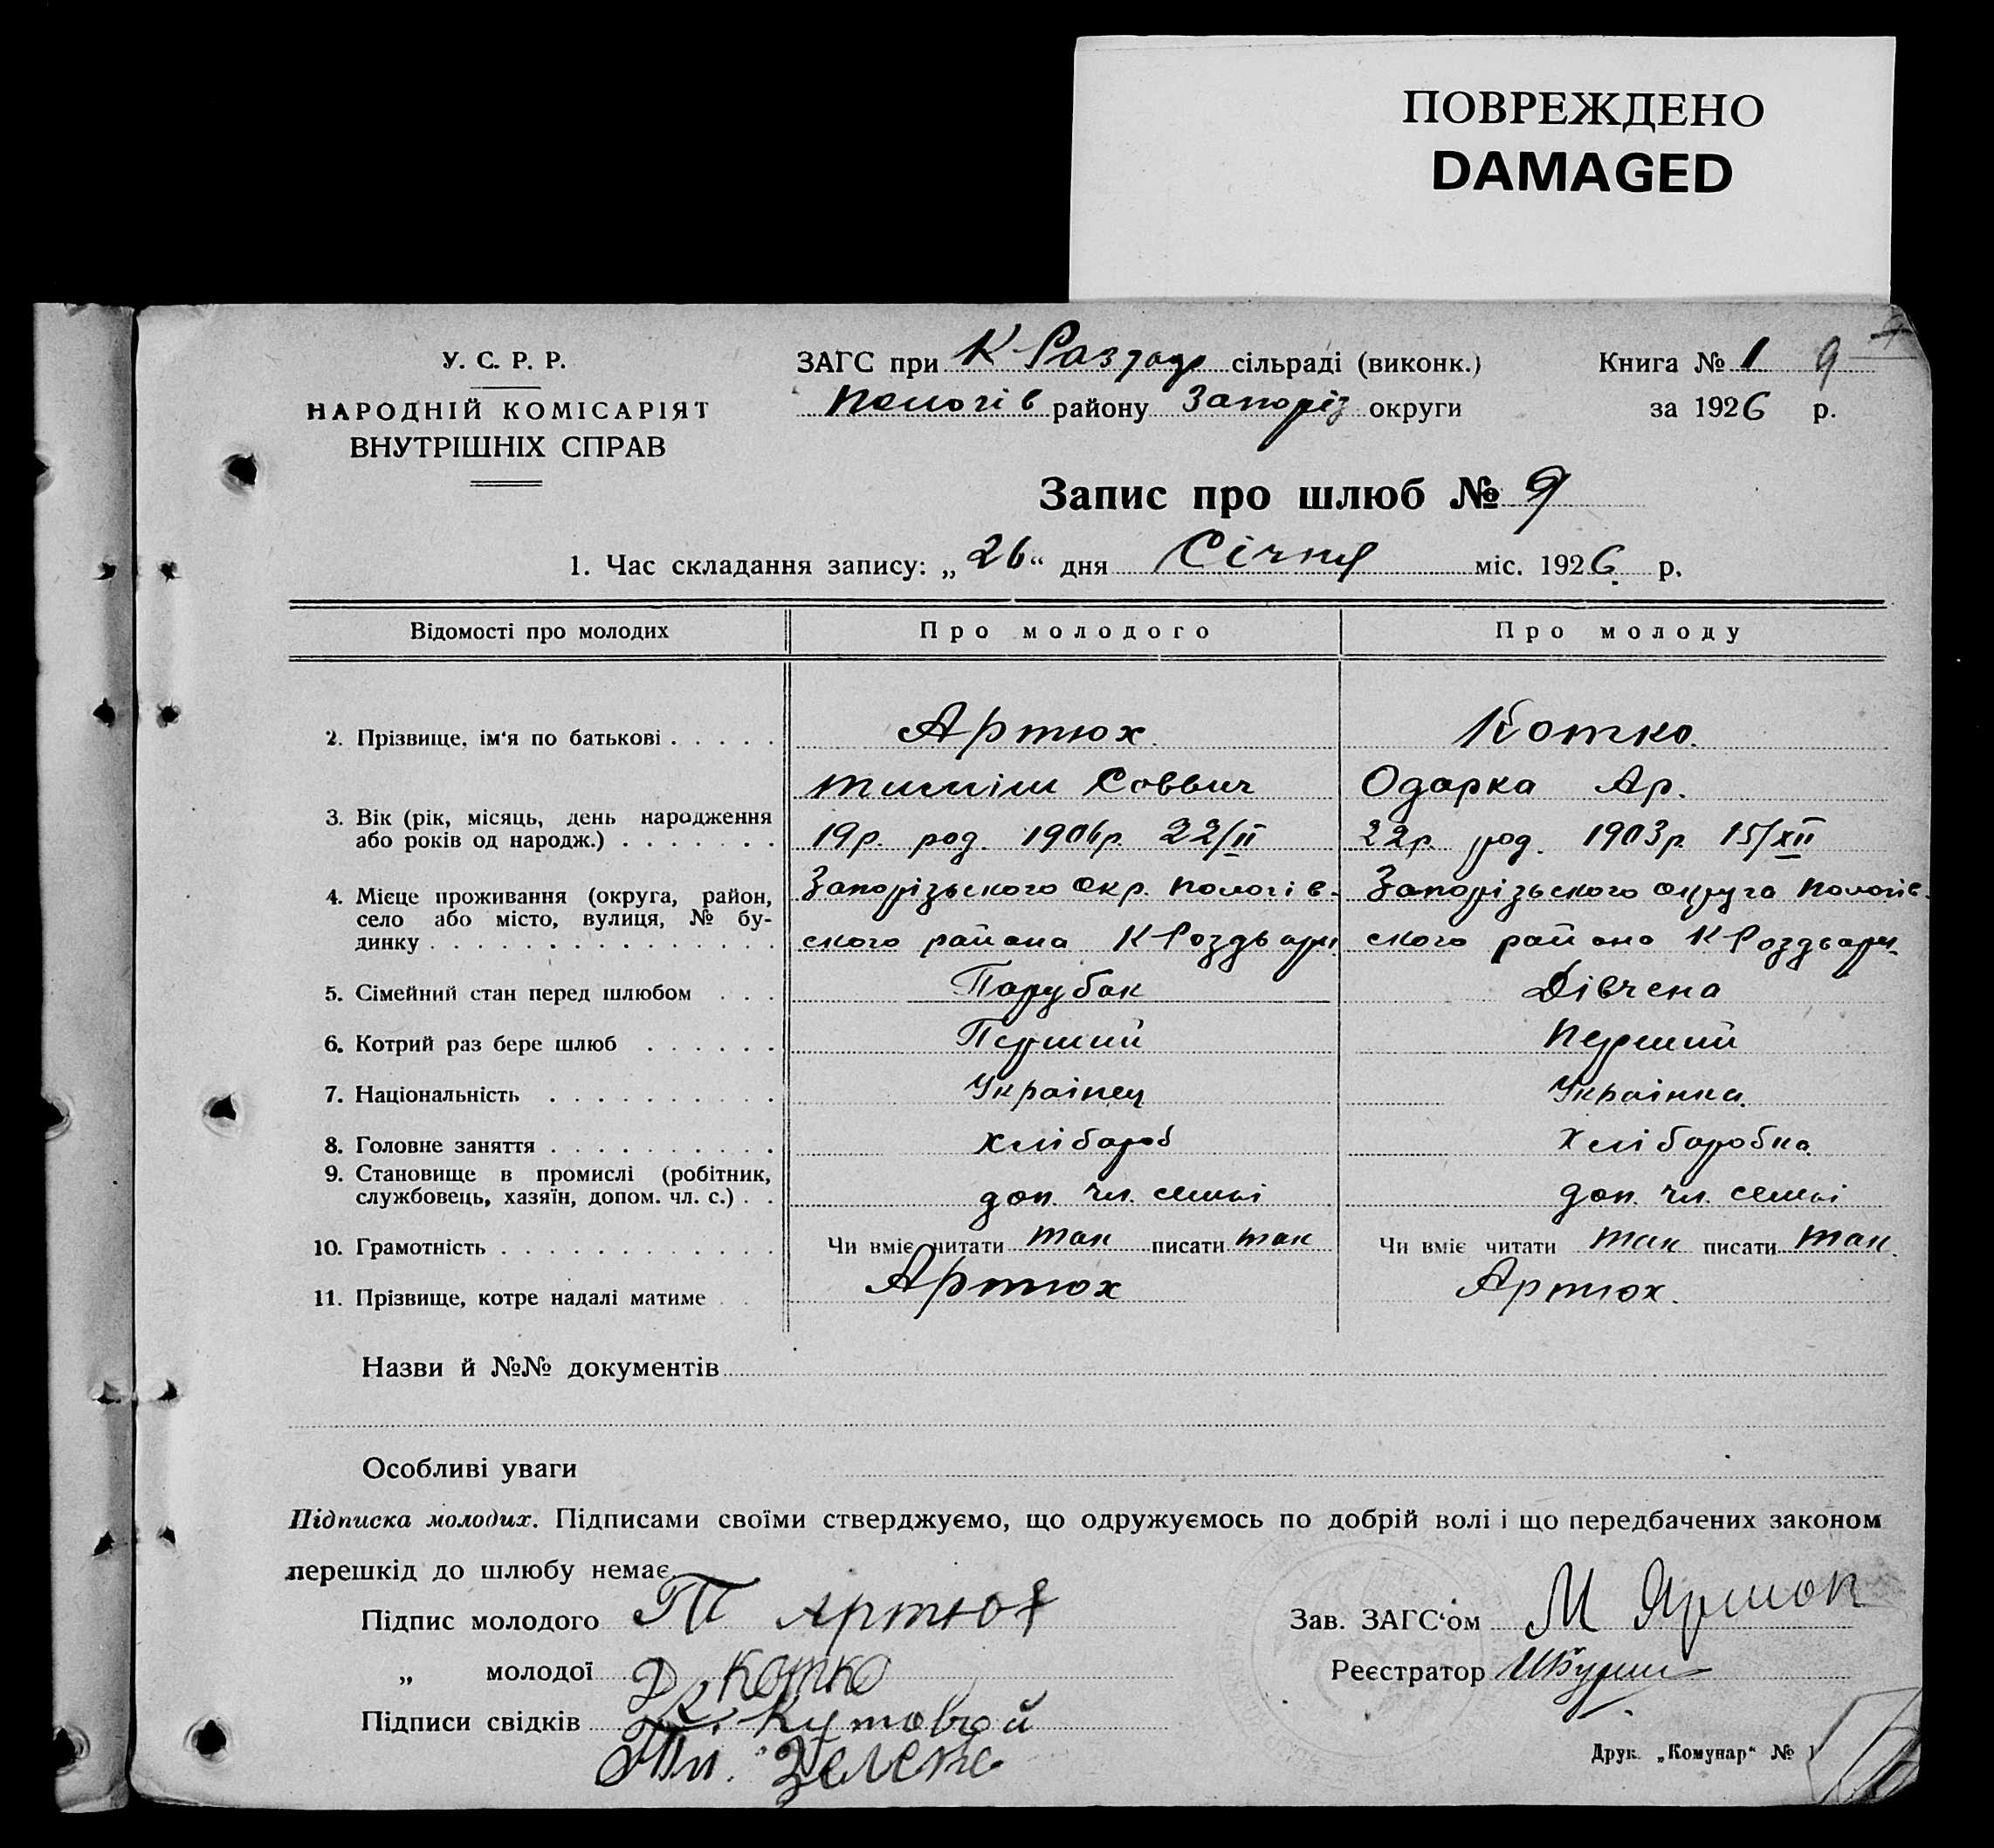 ПОВРЕЖДЕНО
DAMAGED
У. С. Р. Р.
НАРОДНІЙ КОМІСАРІЯТ
ВНУТРІШНІХ СПРАВ
ЗАГС при К Роздор сільраді (виконк.)
Пологів району Запоріз округи
Книга № 1 9
за 1926 р.
Запис про шлюб № 9
1. Час складання запису: „26“ дня Січня міс. 1926 р.
Відомості про молодих Про молодого Про молоду
2. Прізвище, ім‘я по батькові . . . . . Артюх. Котко.
Тиміш Соввич Одарка Ар.
3. Вік (рік, місяць, день народження
або років од народж.) . . . . . . . 19р. род. 1906р. 22/II 22р. род. 1903р 15/XII
4. Мієце проживання (округа, район,
село або місто, вулиця, № бу-
динку . . . . . . . . . . . . . . .
Запорізького Окр. Пологів- Запорізького округа Пологів-
ского района К Роздьори ского района К Роздьори
5. Сімейний стан перед шлюбом . . . Парубак Дівчена
6. Котрий раз бере шлюб . . . . . . Перший Перший
7. Національність . . . . . . . . . . Українец Українка
8. Головне заняття . . . . . . . . . . Хлібороб Хліборобка
9. Становище в промислі (робітник,
службовець, хазяїн, допом. чл. с.) . . доп. чл. семьі доп. чл. семьі
10. Грамотність . . . . . . . . . . . . Чи вміє читати так писати так Чи вміє читати так писати так
11. Прізвище, котре надалі матиме . . Артюх Артюх.
Назви й №№ документів
Особливі уваги
Підписка молодих. Підписами своїми стверджуємо, що одружуємось по добрій волі і що передбачених законом
перешкід до шлюбу немає.
Підпис молодого Т Артюх
„ молодої Котко
Підписи свідків Кутовой
Зелене
Зав. ЗАГС‘ом М
Реєстратор
Друк. „Комунар“ №